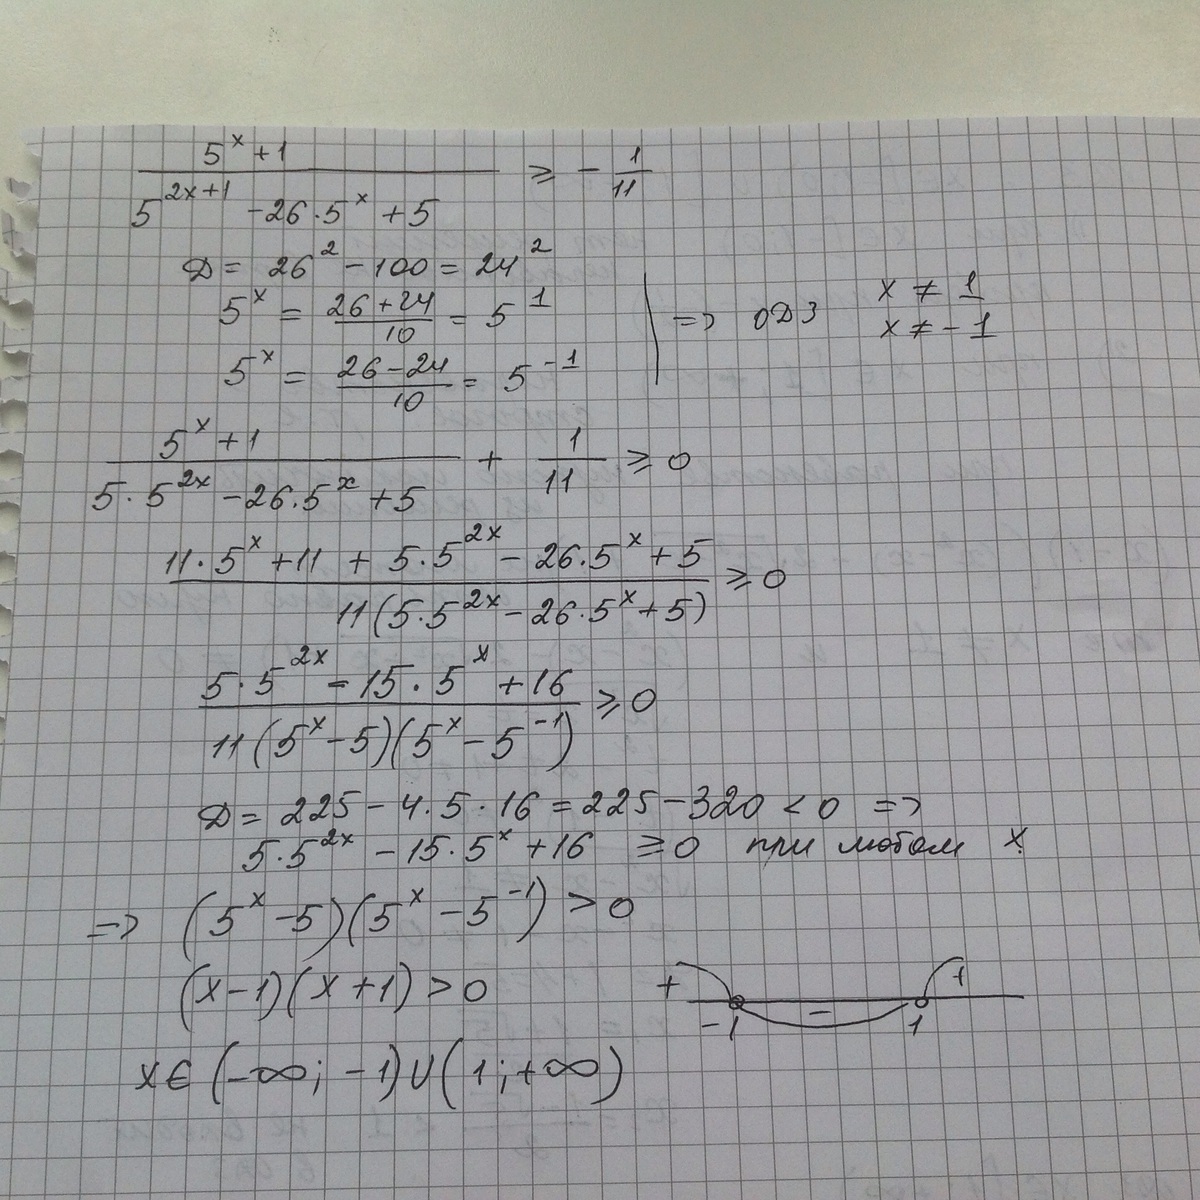 5^x + 1
5^(2x+1) - 26·5^x + 5 ≥ - 1/11
D = 26^2 - 100 = 24^2
5^x = (26 + 24)/10 = 5^1
5^x = (26 - 24)/10 = 5^(-1)
=> ОДЗ x ≠ 1
x ≠ -1
(5^x + 1)/(5·5^(2x) - 26·5^x + 5) + 1/11 ≥ 0
(11·5^x + 11 + 5·5^(2x) - 26·5^x + 5)/(11(5·5^(2x) - 26·5^x + 5)) ≥ 0
(5·5^(2x) - 15·5^x + 16)/(11(5^x - 5)(5^x - 5^(-1))) ≥ 0
D = 225 - 4·5·16 = 225 - 320 < 0 =>
5·5^(2x) - 15·5^x + 16 ≥ 0 при любом x.
=> (5^x - 5)(5^x - 5^(-1)) > 0
(x - 1)(x + 1) > 0
+ - +
-1 1
x ∈ (-∞; -1) ∪ (1; +∞)